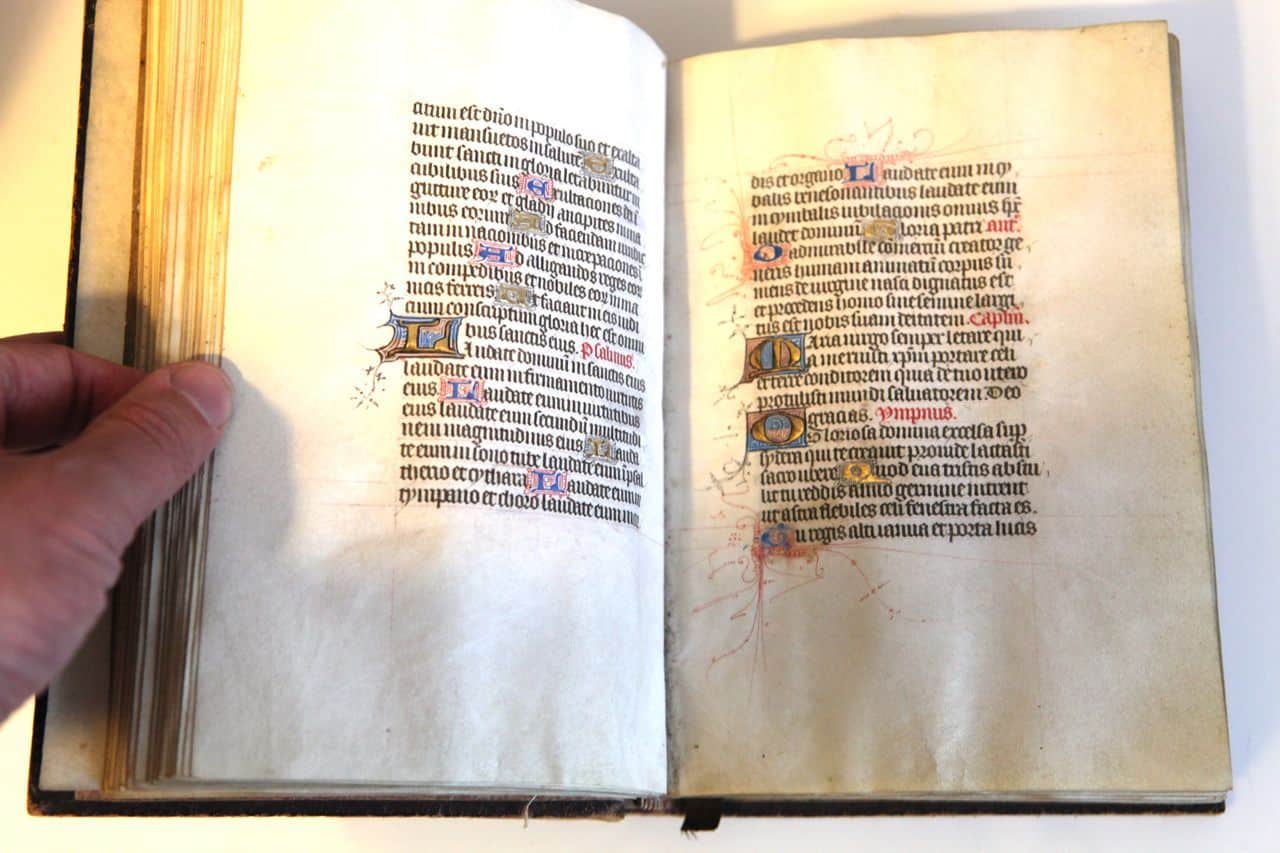 atum est dño in populo suo et exalta
uit mansuetos in salute Exulta
bunt sancti in gloria letabuntur in
cubilibus suis Exultaciones dei ī
gutture eor et gladij ancipites in ma
nibus eorum Ad faciendam uindic
tam in nacionibus et increpaciones ī
populis Ad alligandos reges eor
in compedibus et nobiles eor in ma
nicis ferreis Ut faciant in eis iudi
cium conscriptum gloria hec est omni
bus sanctis eius. Psalmus.
Laudate dominum in sanctis eius
laudate eum in firmamento uirtutis
eius. Laudate eum in uirtutibus
eius laudate eum secundū multitudi
nem magnitudinis eius Lauda
te eum in sono tube laudate eum ī psal
therio et cythara Laudate eum in
tympano et choro laudate eum in cor
dis et organo Laudate eum in cym
balis benesonantibus laudate eum
in cymbalis iubilagonis omnis sp̄c
laudet dominū Gloria patri ant.
O admirabile comerciū creator ge
neris humani animatū corpus su
mens de uirgine nasci dignatus est
et procedens homo sine semine largi
tus est nobis suam deitatem. Capl̄m.
Maria uirgo semper letare qui
a meruisti xp̄m portare celi
et terre conditorem quia de tuo utero
protulisti mundi saluatorem Deo
gracias. Ympnus.
O Gloriosa domina excelsa sup
sydera qui te creauit prouide lactasti
sacro ubere Quod eua tristis abstu
lit tu reddis almo germine intrent
ut astra flebiles celi fenestra facta es.
Tu regis alti ianua et porta lucis